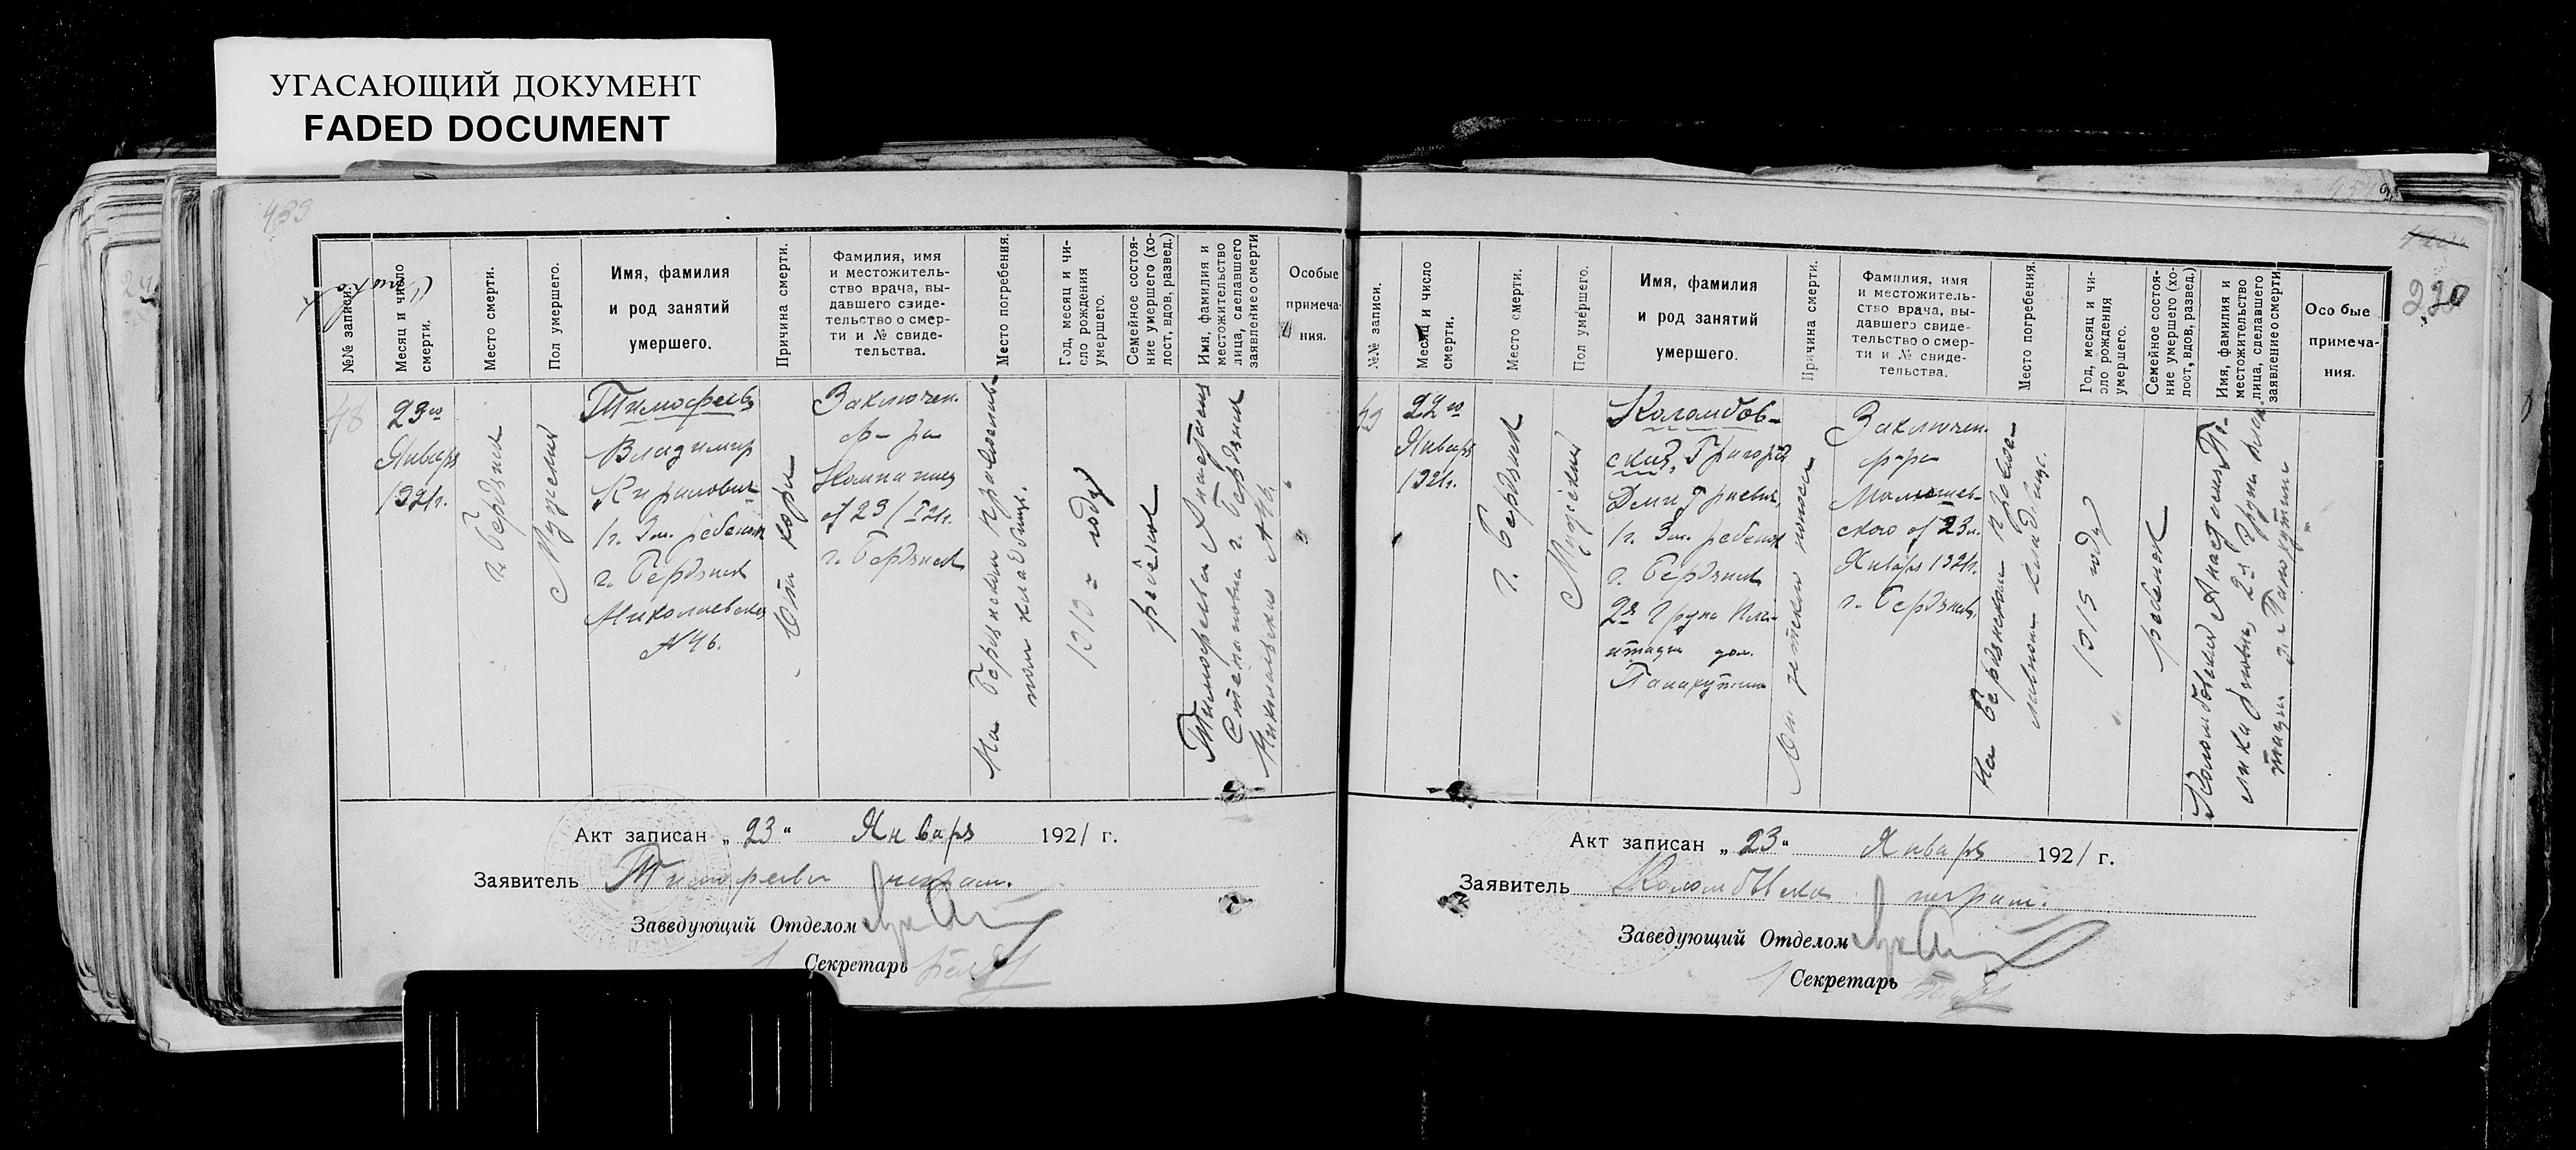 УГАСАЮЩИЙ ДОКУМЕНТ
FADED DOCUMENT
439
№№ записи.
Месяц и число
смерти.
Место смерти.
Пол умершего.
Имя, фамилия
и род занятий
умершего.
Причина смерти.
Фамилия, имя
и местожитель-
ство врача, вы-
давшего свиде-
тельство о смер-
ти и № свиде-
тельства.
Место погребения.
Год, месяц и чи-
сло рождения
умершего.
Семейное состоя-
ние умершего (хо-
лост, вдов, развед.)
Имя, фамилия и
местожительство
лица, сделавшего
заявление о смерти
Особые
примеча-
ния.
48
23го
Января
1921г.
г. Бердянск
Мужской
Тимофеев
Владимир
Кирилович
1г. 3м. ребенок
г. Бердянск
Николаевская
№46.
От кори
Заключен.
ф-ра
от 23/I 21г.
г. Бердянск
На Бердянском православ-
ном кладбище.
1919 г. году
ребенок
Тимофеева Анастасия
Степановна г. Бердянск
Николаевская №46.
Акт записан „23“ Января 1921 г.
Заявитель Тимофеева неграм.
Заведующий Отделом
Секретарь
220
№№ записи.
Месяц и число
смерти.
Место смерти.
Пол умершего.
Имя, фамилия
и род занятий
умершего.
Причина смерти.
Фамилия, имя
и местожитель-
ство врача, вы-
давшего свиде-
тельство о смер-
ти и № свиде-
тельства.
Место погребения.
Год, месяц и чи-
сло рождения
умершего.
Семейное состоя-
ние умершего (хо-
лост, вдов, развед.)
Имя, фамилия и
местожительство
лица, сделавшего
заявление о смерти
Особые
примеча-
ния.
49
22го
Января
1921г.
г. Бердянск
Мужской
Коломбов-
ский, Григорий
Дмитриевич,
1г. 3м. ребенок
г. Бердянск
2я Група План-
тации дом.
От
Заключен.
ф-ра
ского от 23го
Января 1921г.
г. Бердянск,
На Бердянском правос-
лавном кладбище.
году
ребенок
Коломбовская Анастасия
2я Група План-
тации
Акт записан „23“ Января 1921 г.
Заявитель Коломбовская неграм.
Заведующий Отделом
Секретарь